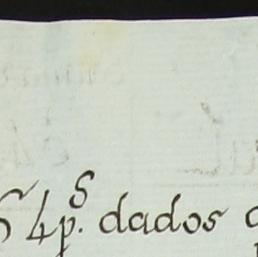 4 p.s dados